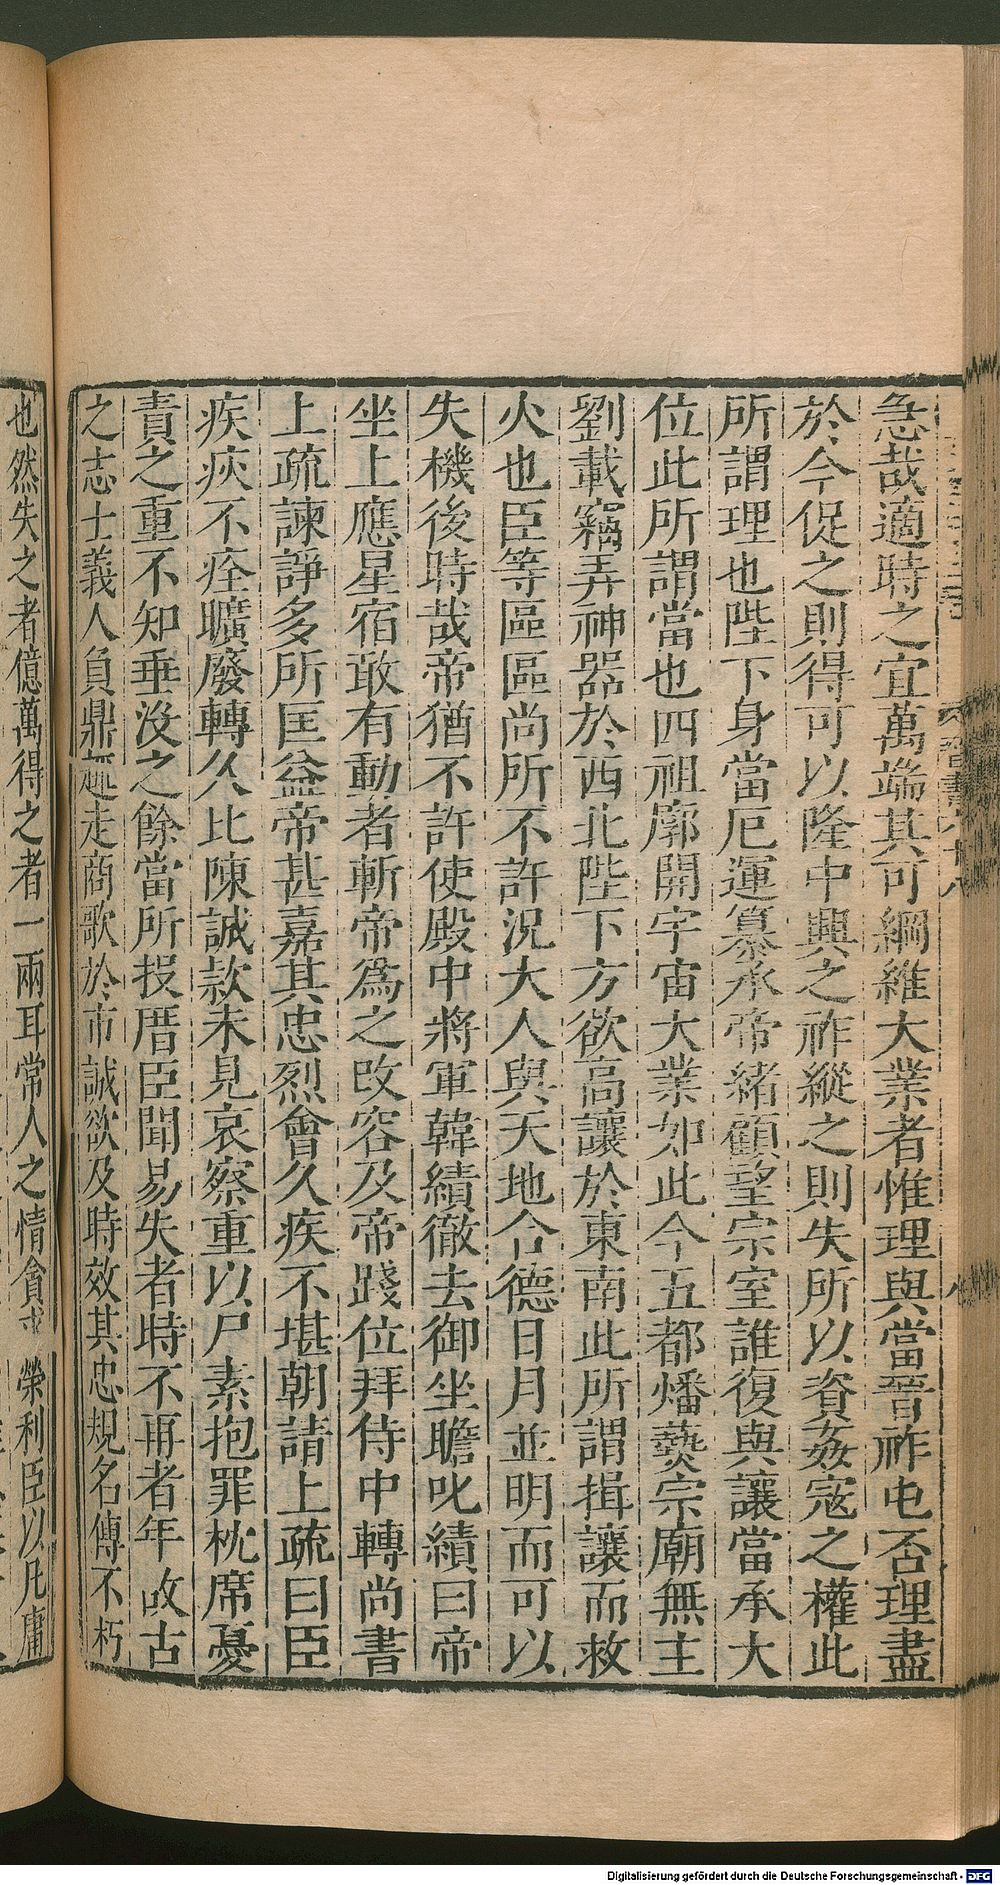 急哉適時之宜萬端其可綱維大業者惟理與當晉祚屯否理盡
於今促之則得可以隆中興之祚縱之則失所以資姦寇之權此
所謂理也陛下身當厄運纂承帝緒顧望宗室誰復與讓當承大
位此所謂當也四祖廓開宇宙大業如此今五都燔爇宗廟無主
劉載竊弄神器於西北陛下方欲高讓於東南此所謂揖讓而救
火也臣等區區尚所不許況大人與天地合德日月並明而可以
失機後時哉帝猶不許使殿中將軍韓績徹去御坐瞻叱績曰帝
坐上應星宿敢有動者斬帝爲之改容及帝踐位拜侍中轉尚書
上疏諫諍多所匡益帝甚嘉其忠烈會久疾不堪朝請上疏曰臣
疾疢不痊曠廢轉久比陳誠款未見哀察重以尸素抱罪枕席憂
責之重不知垂没之餘當所投厝臣聞易失者時不再者年故古
之志士義人負鼎趣走商歌於市誠欲及時效其忠規名傳不朽
也然失之者億萬得之者一兩耳常人之情貪求榮利臣以凡庸
Digitalisierung gefördert durch die Deutsche Forschungsgemeinschaft - DFG